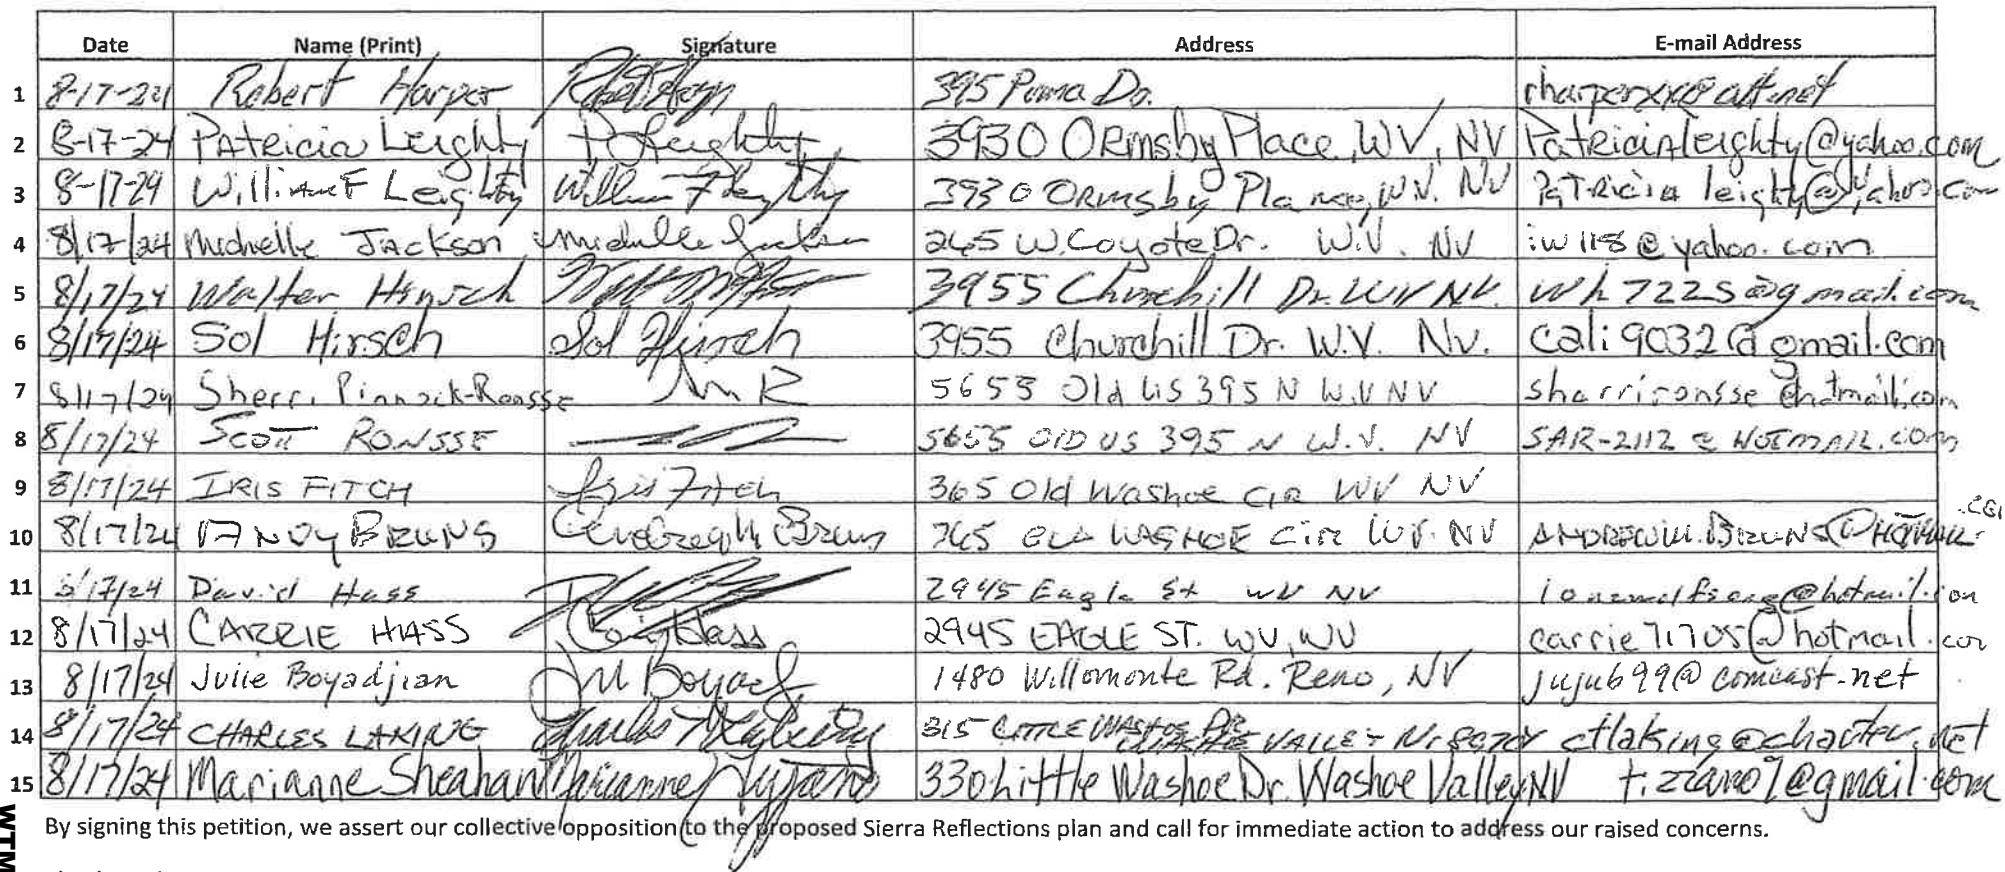 Date Name (Print) Signature Address E-mail Address
1 8-17-24 Robert Harper 395 Puma Dr. rharperxx@att.net
2 8-17-24 Patricia Leighty P Leighty 3930 Ormsby Place, WV, NV Patricialeighty@yahoo.com
3 8-17-24 William F Leighty William F Leighty 3930 Ormsby Place, W.V. NV Patricia leighty@yahoo.com
4 8/17/24 Michelle Jackson Michelle Jackson 245 W. Coyote Dr. W.V. NV iw118@yahoo.com
5 8/17/24 Walter Hirsch 3955 Churchill Dr. WV NV. wh7225@gmail.com
6 8/17/24 Sol Hirsch Sol Hirsch 3955 Churchill Dr. W.V. Nv. cali9032@gmail.com
7 8/17/24 Sherri Pinnock-Ronsse 5653 Old US 395 N W.V NV sherrironsse@hotmail.com
8 8/17/24 Scott RONSSE 5653 OLD US 395 N W.V. NV SAR-2112@HOTMAIL.COM
9 8/17/24 IRIS FITCH Iris Fitch 365 Old Washoe Cir WV NV
10 8/17/24 ANDY BRUNS 365 OLD WASHOE Cir WV. NV ANDREWM.BRUNS@HOTMAIL.COM
11 8/17/24 David Hass 2945 Eagle St WV NV @hotmail.com
12 8/17/24 CARRIE HASS 2945 EAGLE ST. WV, NV carrie71705@hotmail.com
13 8/17/24 Julie Boyadjian 1480 Willomonte Rd. Reno, NV juju699@comcast.net
14 8/17/24 CHARLES LAKING 315 LITTLE WASHOE DR WASHOE VALLEY NV 89704 ctlaking@charter.net
15 8/17/24 Marianne Sheahan Marianne 330 Little Washoe Dr. Washoe Valley NV tizziano7@gmail.com
By signing this petition, we assert our collective opposition to the proposed Sierra Reflections plan and call for immediate action to address our raised concerns.
WTM